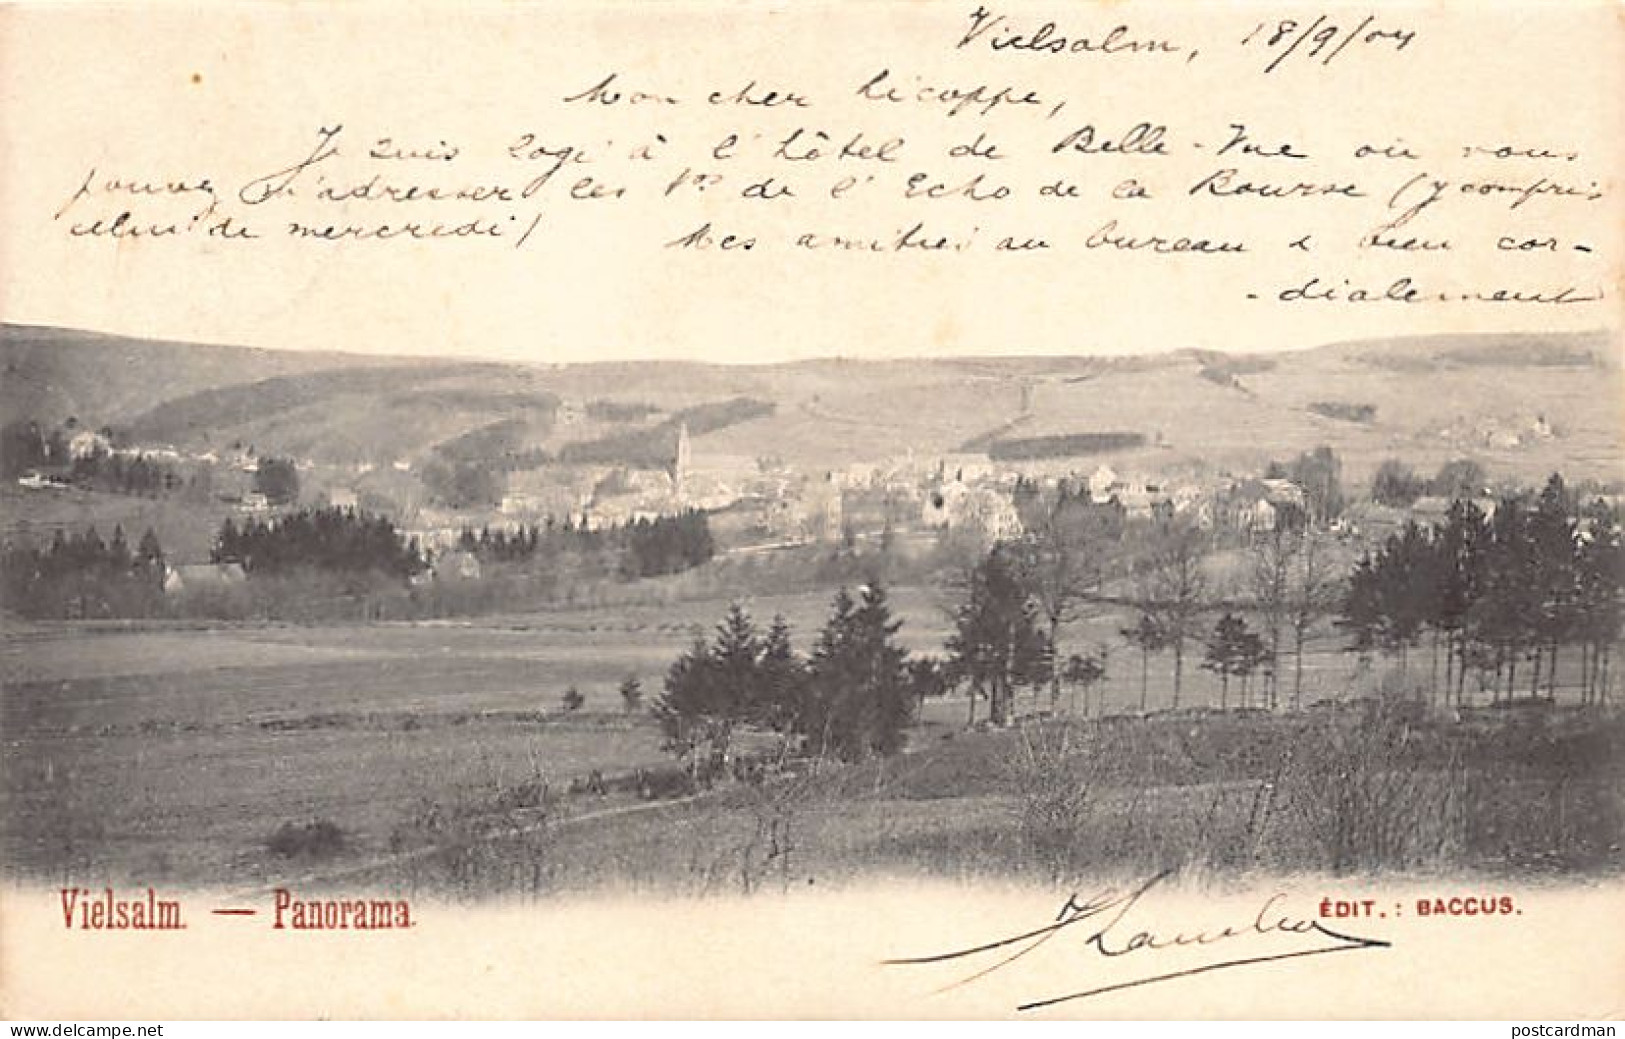 Vielsalm, 18/9/04
Mon cher Licoppe,
Je suis logé à l'hôtel de Belle-Vue où vous
pouvez m'adresser les Nos de l'Echo de la Bourse (y compris
celui de mercredi)
Mes amitiés au bureau & bien cor-
-dialement
Vielsalm. — Panorama.
ÉDIT. : BACCUS.
http://www.delcampe.net
postcardman